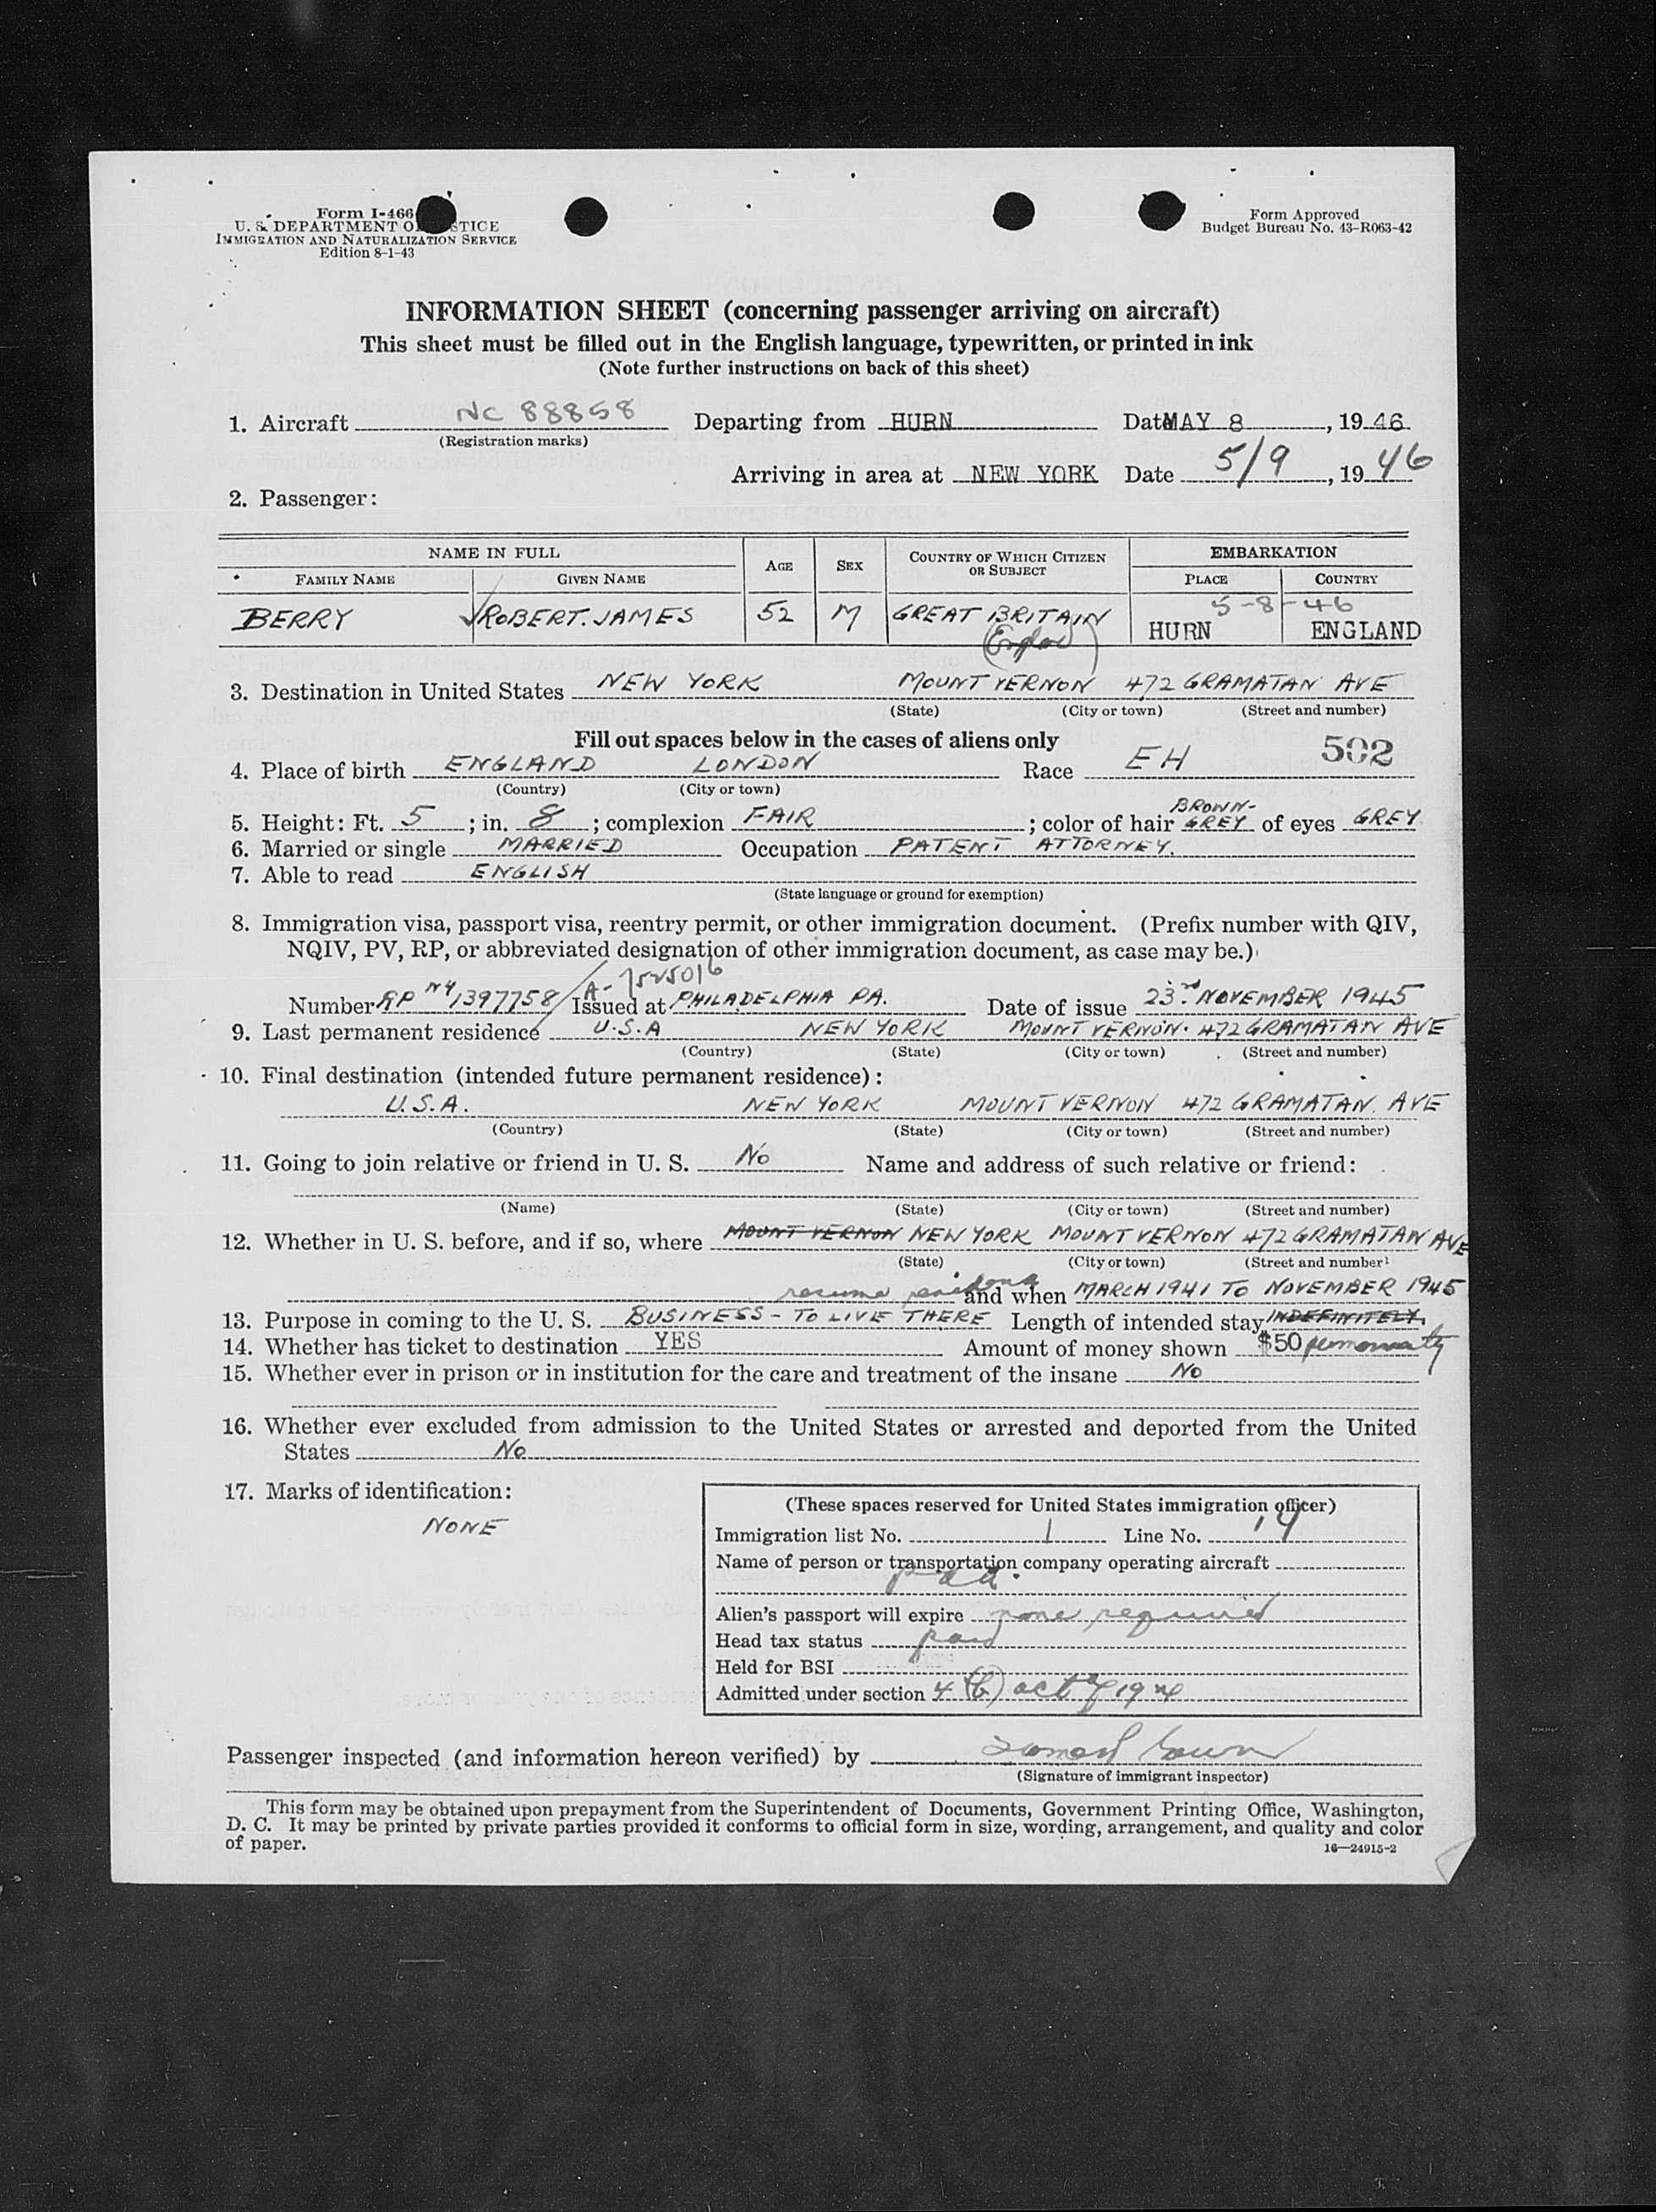 Form I-466
U. S. DEPARTMENT OF JUSTICE
IMMIGRATION AND NATURALIZATION SERVICE
Edition 8-1-43
Form Approved
Budget Bureau No. 43-R063-42
INFORMATION SHEET (concerning passenger arriving on aircraft)
This sheet must be filled out in the English language, typewritten, or printed in ink
(Note further instructions on back of this sheet)
1. Aircraft NC 88858 Departing from HURN Date MAY 8, 1946
(Registration marks)
Arriving in area at NEW YORK Date 5/9, 1946
2. Passenger:
NAME IN FULL AGE SEX COUNTRY OF WHICH CITIZEN OR SUBJECT EMBARKATION
FAMILY NAME GIVEN NAME PLACE COUNTRY
5-8-46
BERRY ROBERT. JAMES 52 M GREAT BRITAIN HURN ENGLAND
3. Destination in United States NEW YORK MOUNT VERNON 472 GRAMATAN AVE
(State) (City or town) (Street and number)
Fill out spaces below in the cases of aliens only 502
4. Place of birth ENGLAND LONDON Race EH
(Country) (City or town)
5. Height: Ft. 5; in. 8; complexion FAIR; color of hair BROWN-GREY of eyes GREY
6. Married or single MARRIED Occupation PATENT ATTORNEY.
7. Able to read ENGLISH
(State language or ground for exemption)
8. Immigration visa, passport visa, reentry permit, or other immigration document. (Prefix number with QIV,
NQIV, PV, RP, or abbreviated designation of other immigration document, as case may be.)
A-7525016
Number RP NY 1397758 Issued at PHILADELPHIA PA. Date of issue 23rd NOVEMBER 1945
9. Last permanent residence U.S.A NEW YORK MOUNT VERNON. 472 GRAMATAN AVE
(Country) (State) (City or town) (Street and number)
10. Final destination (intended future permanent residence):
U.S.A. NEW YORK MOUNT VERNON 472 GRAMATAN. AVE
(Country) (State) (City or town) (Street and number)
11. Going to join relative or friend in U. S. No Name and address of such relative or friend:
(Name) (State) (City or town) (Street and number)
12. Whether in U. S. before, and if so, where MOUNT VERNON NEW YORK MOUNT VERNON 472 GRAMATAN AVE
(State) (City or town) (Street and number)
resume and when MARCH 1941 TO NOVEMBER 1945
13. Purpose in coming to the U. S. BUSINESS - TO LIVE THERE Length of intended stay INDEFINITELY.
14. Whether has ticket to destination YES Amount of money shown $50 permanently
15. Whether ever in prison or in institution for the care and treatment of the insane No
16. Whether ever excluded from admission to the United States or arrested and deported from the United
States No
17. Marks of identification:
NONE
(These spaces reserved for United States immigration officer)
Immigration list No. 1 Line No. 14
Name of person or transportation company operating aircraft
paa.
Alien's passport will expire none required
Head tax status paid
Held for BSI
Admitted under section 4 (b) act of 1924
Passenger inspected (and information hereon verified) by
(Signature of immigrant inspector)
This form may be obtained upon prepayment from the Superintendent of Documents, Government Printing Office, Washington,
D. C. It may be printed by private parties provided it conforms to official form in size, wording, arrangement, and quality and color
of paper.
16—24915-2